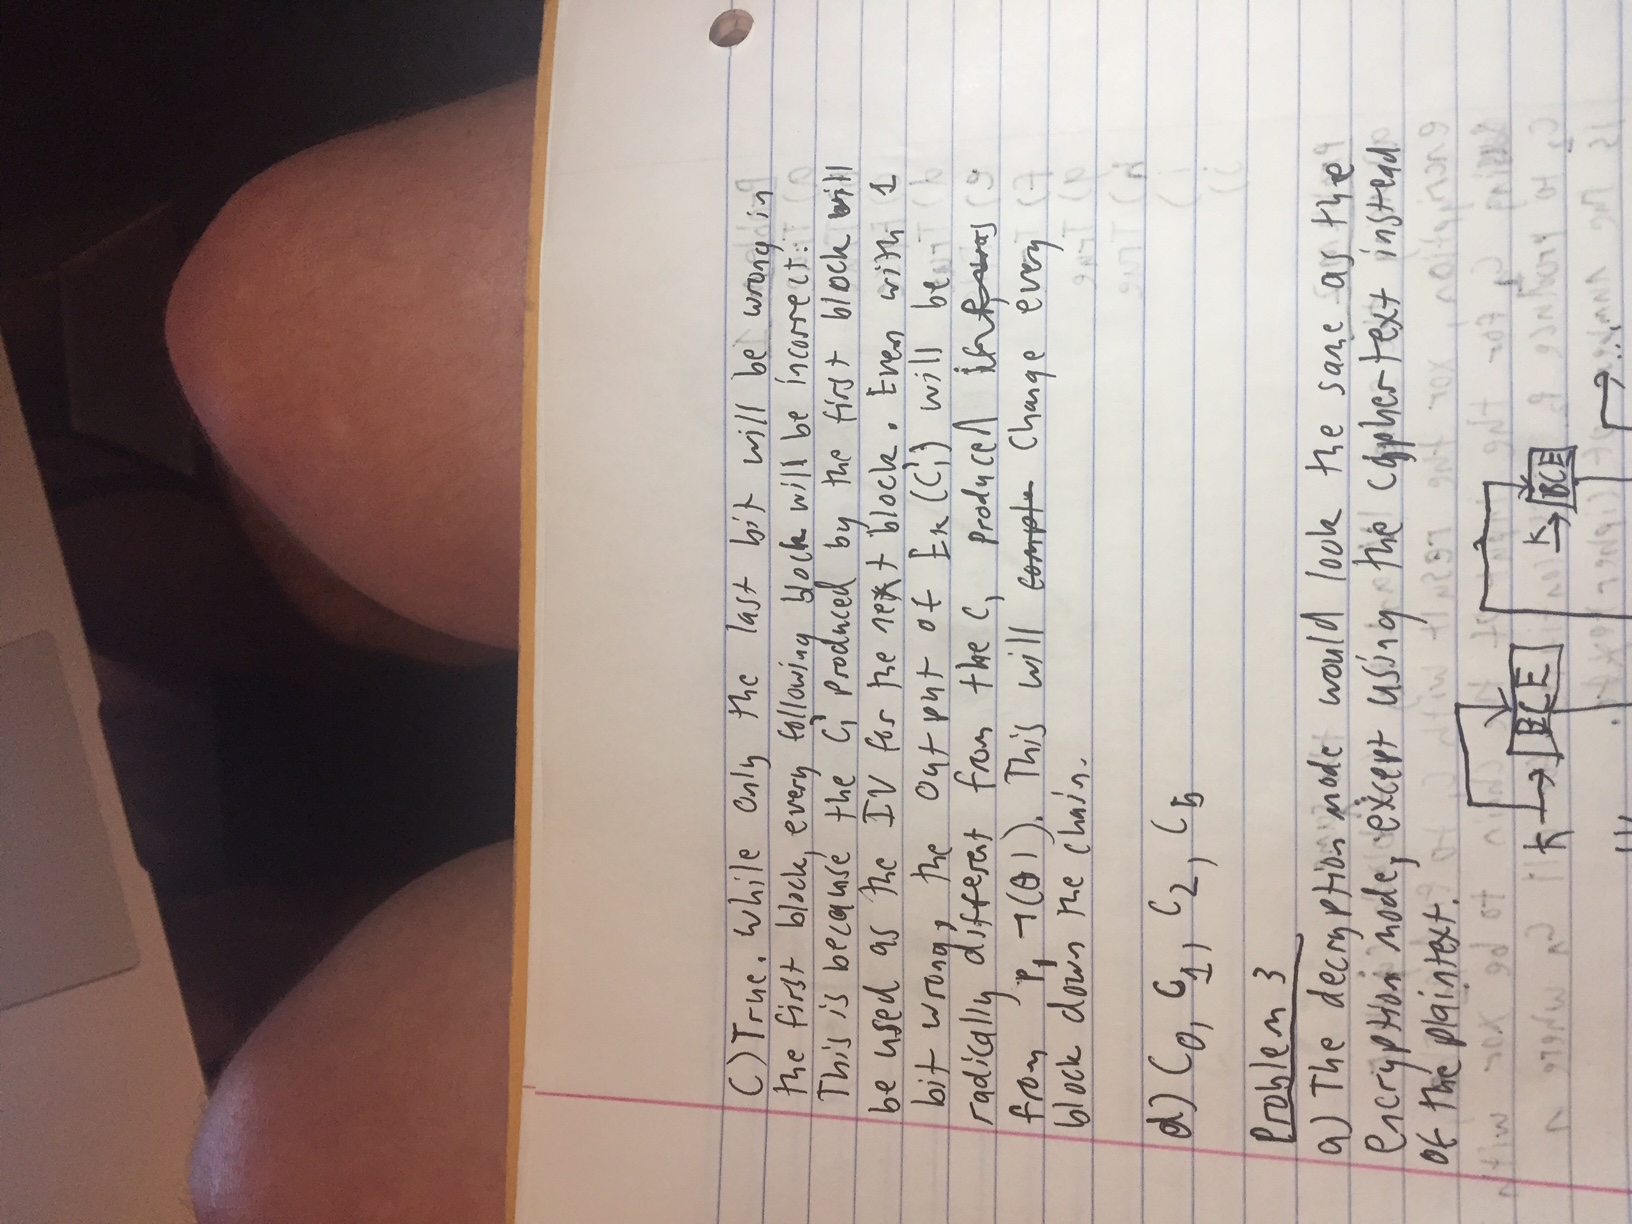 C) True. While only the last bit will be wrong in
the first block, every following block will be incorrect.
This is because the C₁' produced by the first block will
be used as the IV for the next block. Even with 1
bit wrong, the output of Eₖ(C₁') will be
radically different from the C₁ produced
from P₁ ¬(⊕1). This will compl Change every
block down the chain.
d) C₀, C₁, C₂, C₅
Problem 3
a) The decryption mode would look the same as the
encryption mode, except using the cyphertext instead
of the plaintext.
K BCE K BCE
...